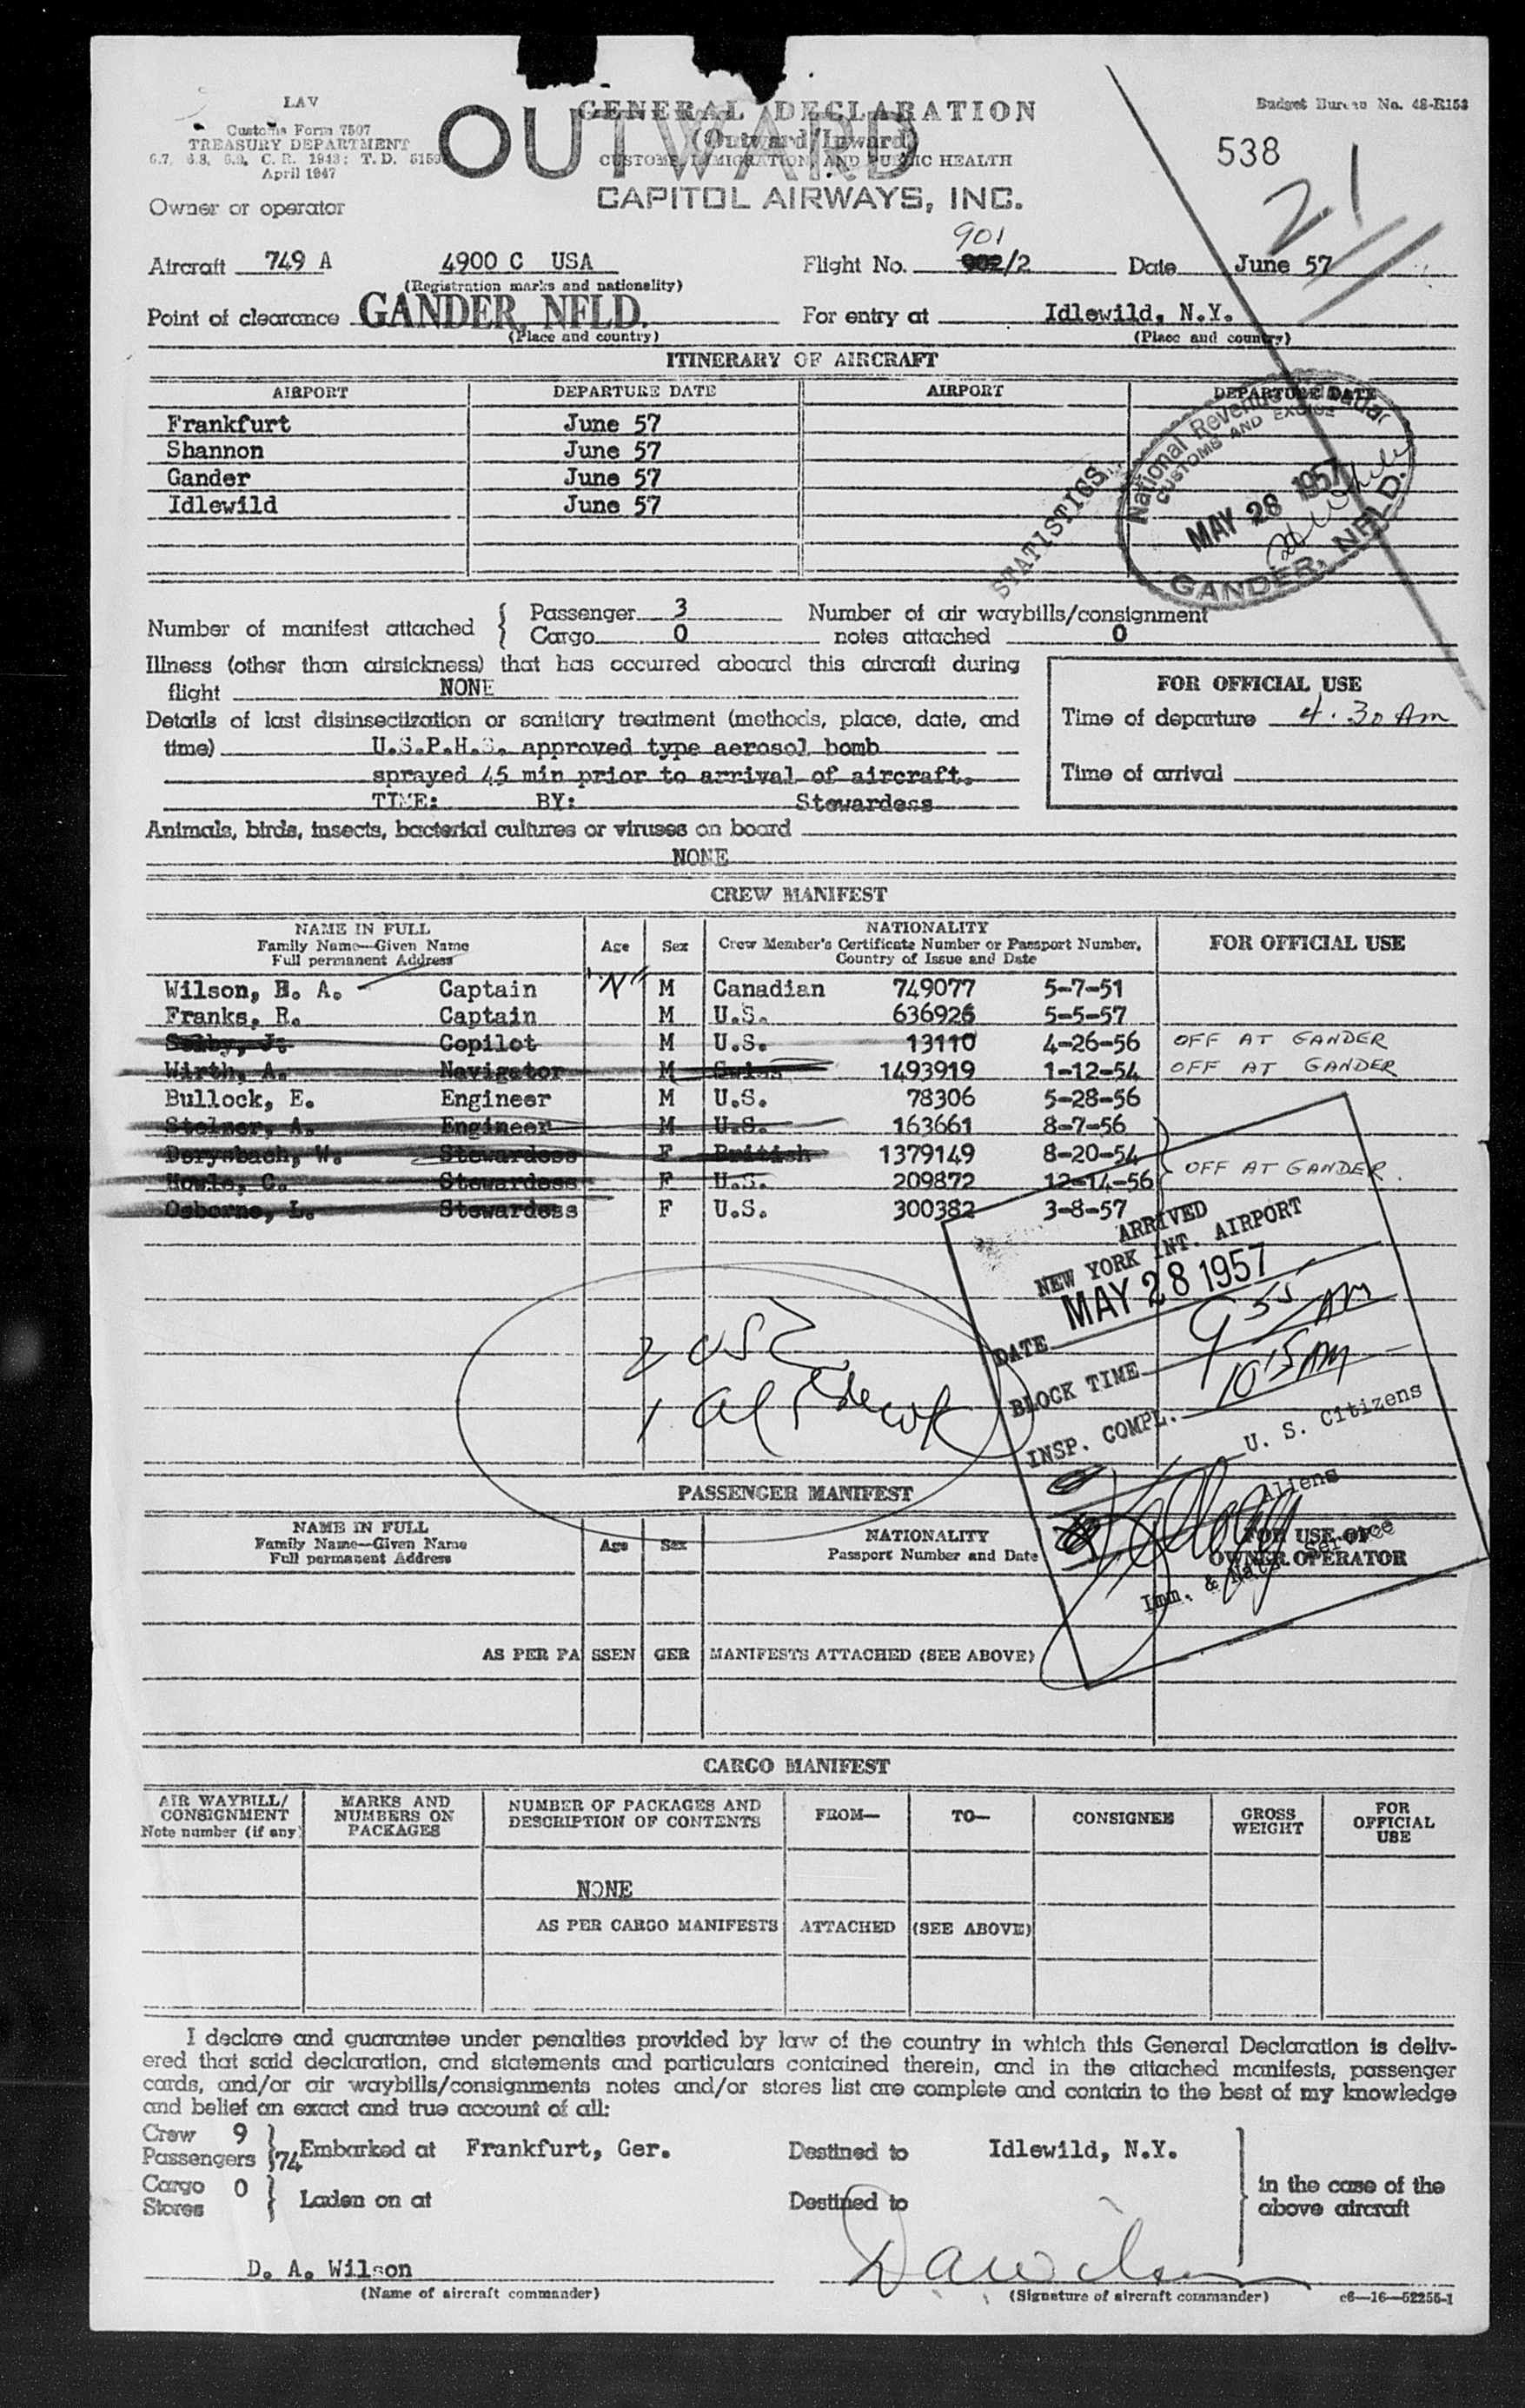 LAV
Customs Form 7507
TREASURY DEPARTMENT
6.7, 6.8, 6.9, C. R. 1943: T. D.
April 1947
OUTWARD
GENERAL DECLARATION
(Outward/Inward)
CUSTOMS, IMMIGRATION, AND PUBLIC HEALTH
CAPITOL AIRWAYS, INC.
Budget Bureau No. 48-R153
538
21
Owner or operator
901
Aircraft 749 A 4900 C USA Flight No. 902/2 Date June 57
(Registration marks and nationality)
Point of clearance GANDER, NFLD. For entry at Idlewild, N.Y.
(Place and country) (Place and country)
ITINERARY OF AIRCRAFT
AIRPORT DEPARTURE DATE AIRPORT DEPARTURE DATE
Frankfurt June 57
Shannon June 57
Gander June 57
Idlewild June 57
STATISTICS
National Revenue
CUSTOMS AND EXCISE
MAY 28 1957
GANDER, NFLD.
Number of manifest attached { Passenger 3 Number of air waybills/consignment
Cargo 0 notes attached 0
Illness (other than airsickness) that has occurred aboard this aircraft during
flight NONE
Details of last disinsectization or sanitary treatment (methods, place, date, and
time) U.S.P.H.S. approved type aerosol bomb
sprayed 45 min prior to arrival of aircraft.
TIME: BY: Stewardess
FOR OFFICIAL USE
Time of departure 4.30 Am
Time of arrival
Animals, birds, insects, bacterial cultures or viruses on board
NONE
CREW MANIFEST
NAME IN FULL
Family Name—Given Name
Full permanent Address
Age Sex
NATIONALITY
Crew Member's Certificate Number or Passport Number,
Country of Issue and Date
FOR OFFICIAL USE
Wilson, H. A. Captain M Canadian 749077 5-7-51
Franks, R. Captain M U.S. 636926 5-5-57
Selby, J. Copilot M U.S. 13110 4-26-56 OFF AT GANDER
Wirth, A. Navigator M Swiss 1493919 1-12-54 OFF AT GANDER
Bullock, E. Engineer M U.S. 78306 5-28-56
Steiner, A. Engineer M U.S. 163661 8-7-56
Stewardess F British 1379149 8-20-54
C. Stewardess F U.S. 209872 12-14-56 OFF AT GANDER
Osborne, L. Stewardess F U.S. 300382 3-8-57
ARRIVED
NEW YORK INT. AIRPORT
DATE MAY 28 1957
BLOCK TIME 9 55 AM
INSP. COMPL. 10 15 AM
U. S. Citizens
Aliens
Imm. & Nat. Service
2 USC
PASSENGER MANIFEST
NAME IN FULL
Family Name—Given Name
Full permanent Address
Age Sex
NATIONALITY
Passport Number and Date
FOR USE OF
OWNER OPERATOR
AS PER PASSENGER MANIFESTS ATTACHED (SEE ABOVE)
CARGO MANIFEST
AIR WAYBILL/
CONSIGNMENT
Note number (if any)
MARKS AND
NUMBERS ON
PACKAGES
NUMBER OF PACKAGES AND
DESCRIPTION OF CONTENTS
FROM— TO— CONSIGNEE
GROSS
WEIGHT
FOR
OFFICIAL
USE
NONE
AS PER CARGO MANIFESTS ATTACHED (SEE ABOVE)
I declare and guarantee under penalties provided by law of the country in which this General Declaration is deliv-
ered that said declaration, and statements and particulars contained therein, and in the attached manifests, passenger
cards, and/or air waybills/consignments notes and/or stores list are complete and contain to the best of my knowledge
and belief an exact and true account of all:
Crew 9
Passengers 74 Embarked at Frankfurt, Ger. Destined to Idlewild, N.Y.
Cargo 0
Stores Laden on at Destined to
in the case of the
above aircraft
D. A. Wilson D A Wilson
(Name of aircraft commander) (Signature of aircraft commander) c6—16—52255-1